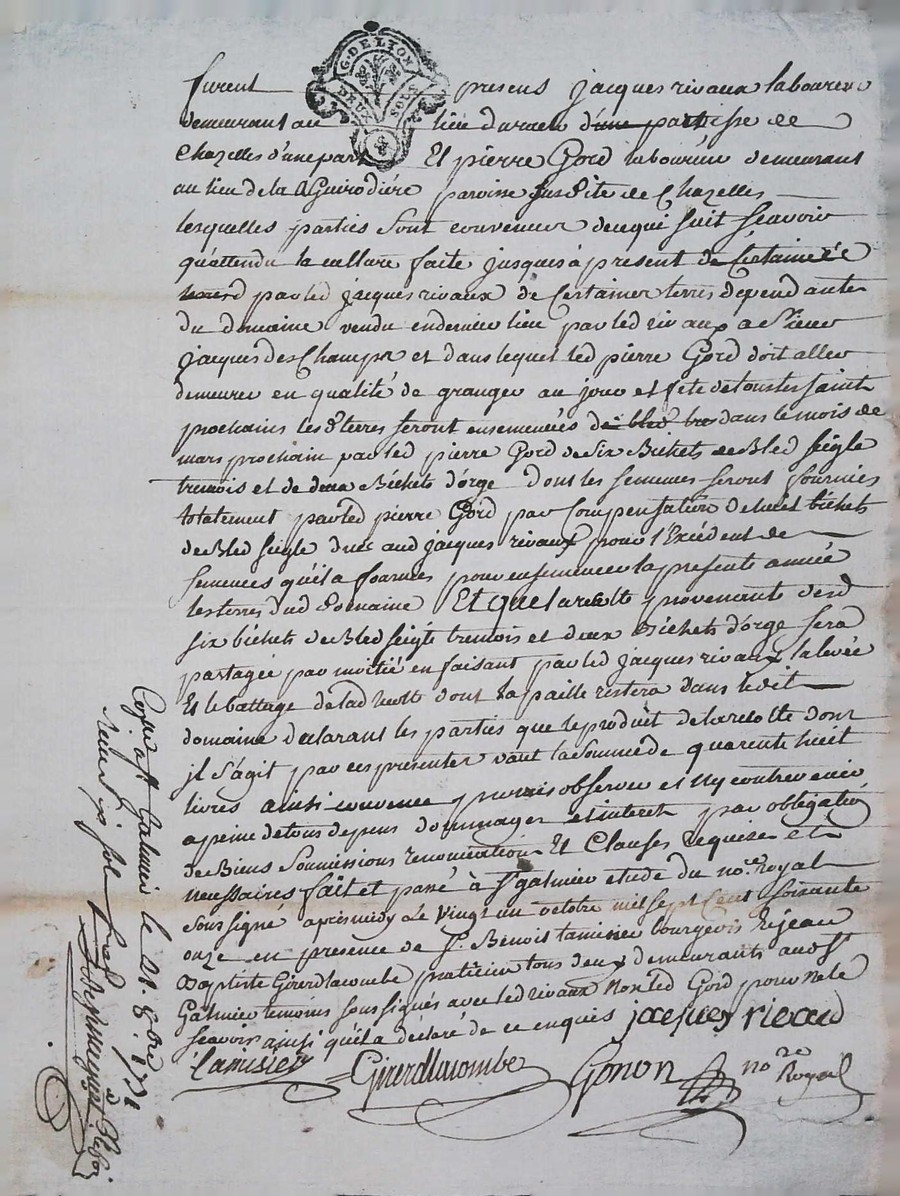 G. DE LYON
furent presens jacques rivaux laboureur
demeurant au lieu parroisse de
Chazelles d'une part Et pierre Gord laboureur demeurant
au lieu de la Guirodiere paroisse susdite de Chazelles
lesquelles parties sont convenues de ce qui suit scavoir
qu'attendu la culture faite jusques à present
par led jacques rivaux de Certaines terres dependantes
du domaine vendu en dernier lieu par led rivaux a sieur
jacques des Champs et dans lequel led pierre Gord doit aller
demeurer en qualité de granger au jour et fete de tous les saints
prochains les d terres seront ensemencées dans le mois de
mars prochain par led pierre Gord de six Bichets de Bled seigle
tremois et de deux Bichets d'orge dont les semences seront fournies
totalement par led pierre Gord par Compensation de huit bichets
de Bled seigle dues aud jacques rivaux pour l'Excédent de
semences qu'il a fournies pour ensemencer la presente année
les terres dud domaine Et que la recolte provenante desd
six bichets de Bled seigle tremois et deux Bichets d'orge sera
partagée par moitié en faisant par led jacques rivaux la levée
Et le battage de lad recolte dont la paille restera dans ledit
domaine declarant les parties que le produit de la recolte dont
il s'agit par ces presentes vaut la somme de quarente huit
livres ainsi convenu promis observer et n'y contrevenir
a peine de tous depens dommages et interets par obligation
de Biens soumissions renonciations Et Clauses requises et
necessaires fait et passé à St galmier etude du nore. Royal
soussigné apres midy Le vingt un octobre mil sept Cent soixante
onze en presence de sr. Benoist tamisier bourgeois et jean
Baptiste Girerdlacombe praticien tous deux demeurants aud St
Galmier temoins soussignés avec led rivaux Non led Gord pour ne le
scavoir ainsi qu'il a déclaré de ce enquis jacques rivaud
tamisier Girerdlacombe Gonon nore
Royal
Galmier le 21. 8bre 1771